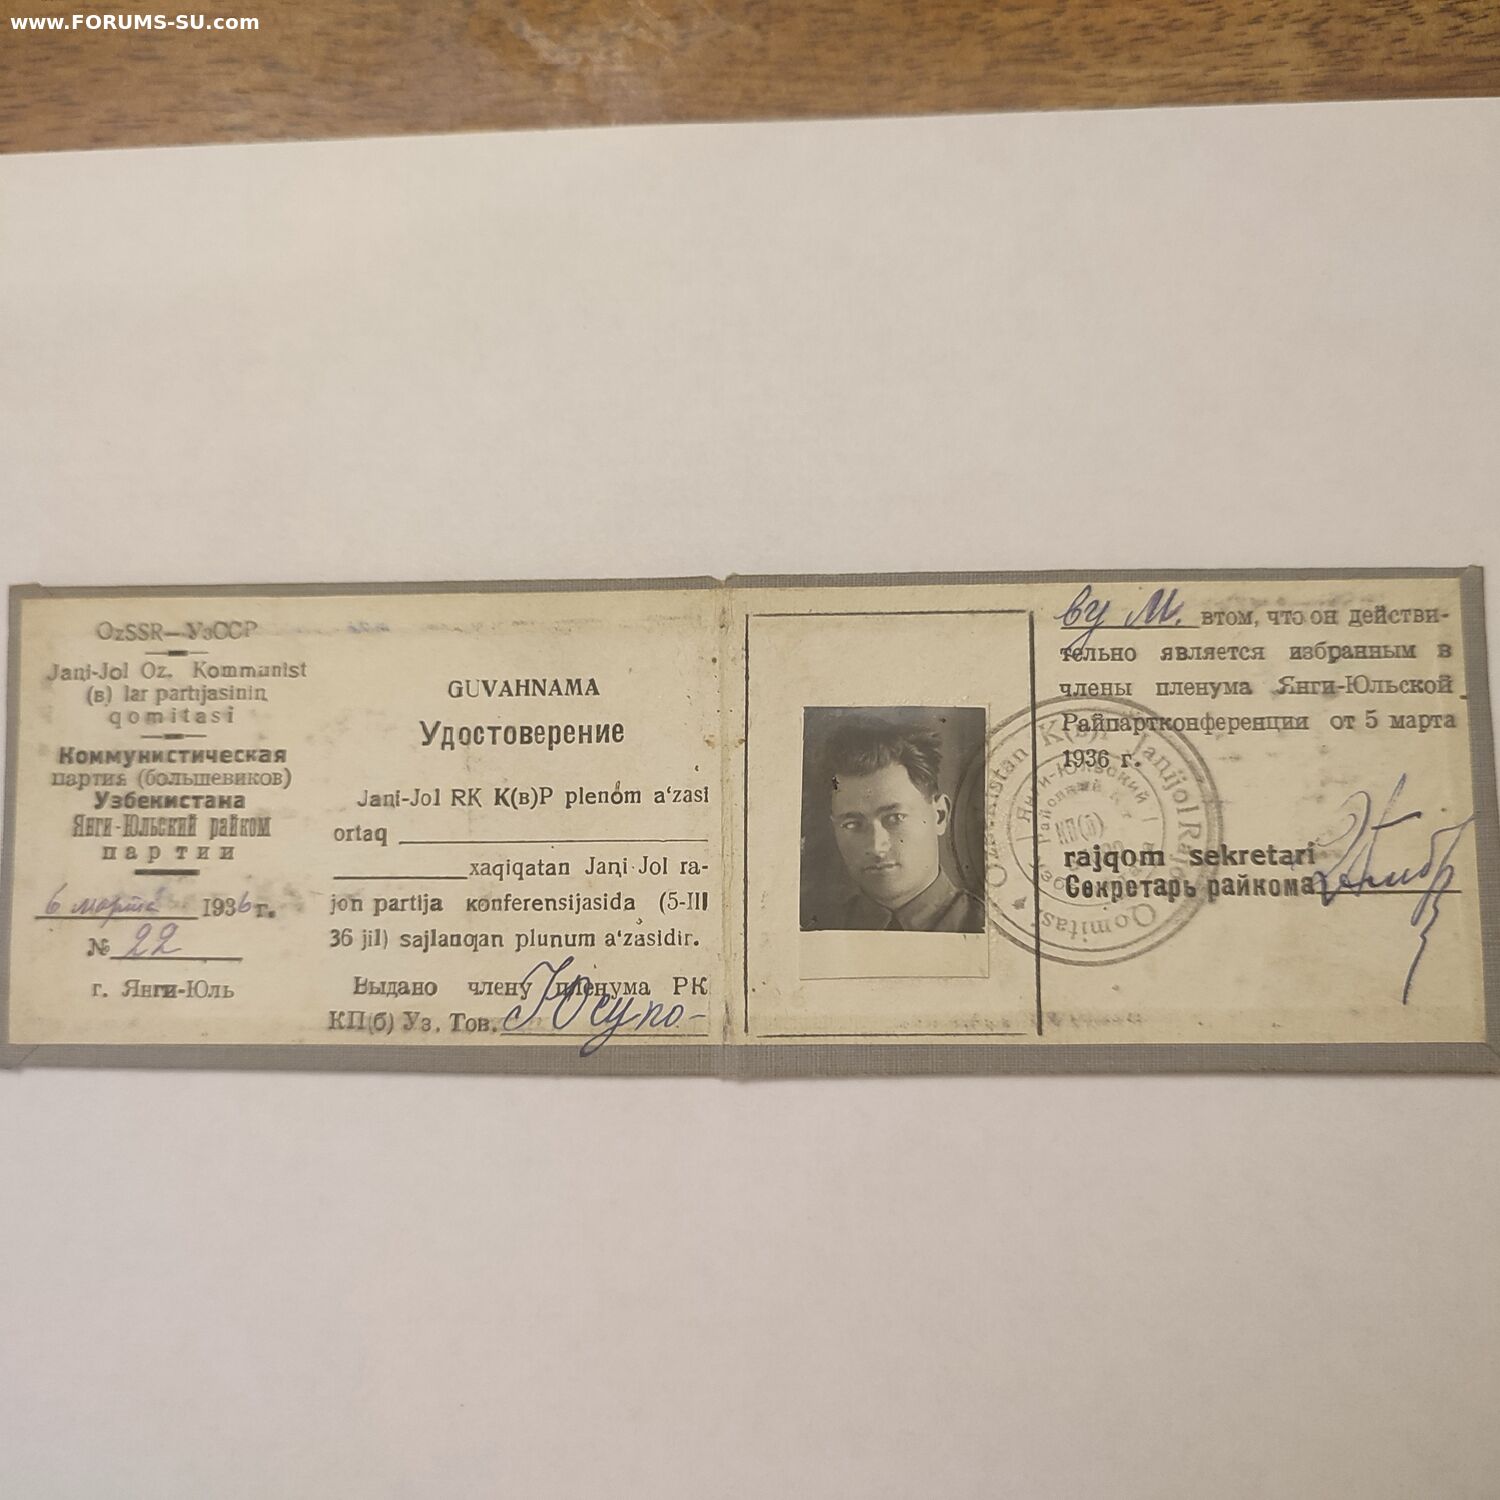 www.FORUMS-SU.com
OzSSR—УзССР
Jaꞑi-Jol Oz. Kommunist
(ʙ) lar partijasinin
qomitasi
Коммунистическая
партия (большевиков)
Узбекистана
Янги-Юльский райком
партии
6 марта 1936 г.
№ 22
г. Янги-Юль
GUVAHNAMA
Удостоверение
Jaꞑi-Jol RK K(ʙ)P plenom a‘zasi
ortaq
xaqiqatan Jaꞑi-Jol ra-
jon partija konferensijasida (5-III
36 jil) sajlanqan plunum a‘zasidir.
Выдано члену пленума РК
КП(б) Уз. Тов. Юсупо-
ву М. в том, что он действи-
тельно является избранным в
члены пленума Янги-Юльской
Райпартконференции от 5 марта
1936 г.
rajqom sekretari
Секретарь райкома
Ozʙekistan K(ʙ)P Jaꞑijol Rajon Qomitasi
Янги-Юльский
Районный
КП(б)